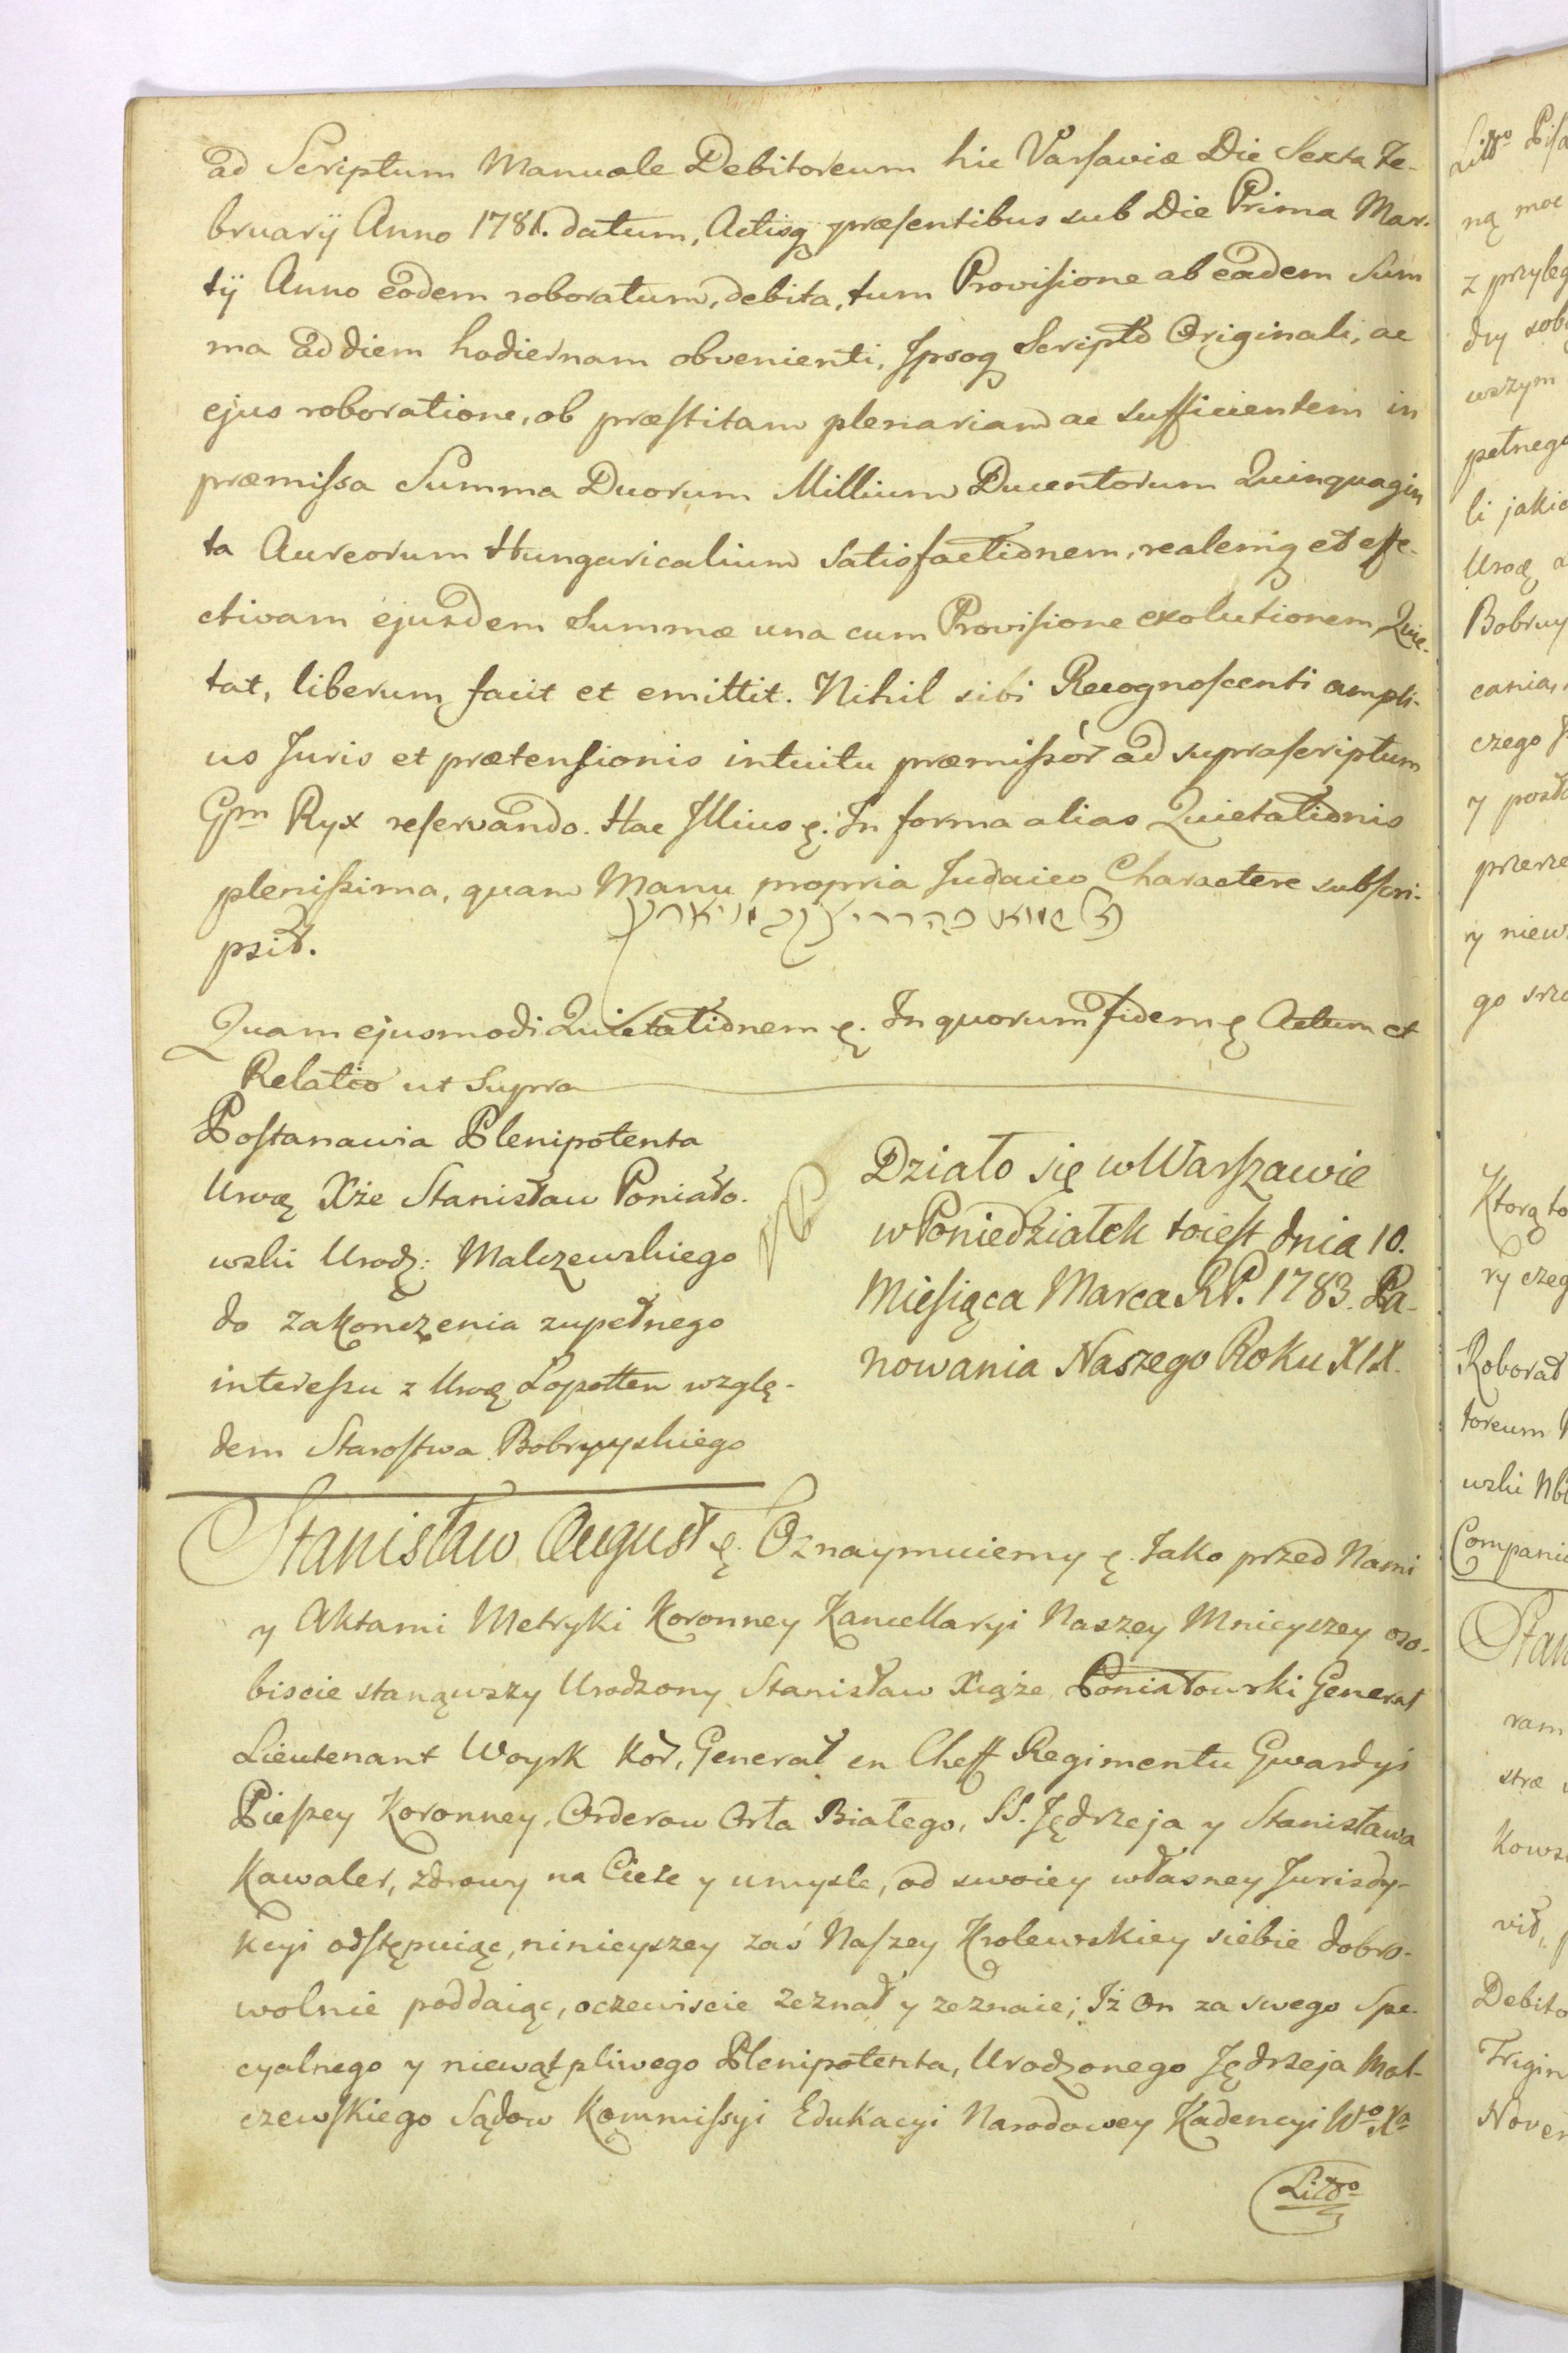 ad Scriptum Manuale Debitoreum hic Varsaviæ Die Sexta Fe-
bruarij Anno 1781. datum, Actisq præsentibus sub Die Prima Mar-
tij Anno eodem roboratum, debita, tum Provisione ab eadem Sum
ma ad diem hodiernam obvenienti, Ipsoq Scripto Originali, ac
ejus roboratione, ob præstitam plenariam ac sufficientem in
præmissa Summa Duorum Millium Ducentorum Quinquagin
ta Aureorum Hungaricalium Satisfactionem, realemq et effe-
ctivam ejusdem Summæ una cum Provisione exolutionem, Quie-
tat, liberum facit et emittit. Nihil sibi Recognoscenti ampli-
us Juris et prætensionis intuitu præmissor ad suprascriptum
Gsm Ryx reservando. Hac Illius ę. In forma alias Quietationis
plenissima, quam Manu propria Judaico Charactere subscri-
psit.
Quam ejusmodi Quietationem ę. In quorum fidem ę Actum et
Relatio ut Supra
Postanawia Plenipotenta
Urooę Xże Stanisław Poniato-
wski Urodz: Malczewskiego
do zakonczenia zupełnego
interessu z Urooę Lopotten wzglę-
dem Starostwa Bobruyskiego
Działo się w Warszawie
w Poniedziałek toiest dnia 10.
Miesiąca Marca RP. 1783. Pa-
nowania Naszego Roku XIX.
Stanisław August ę. Oznaymuiemy ę. Jako przed Nami
y Aktami Metryki Koronney Kancellaryi Naszey Mnieyszey oso-
biscie stanąwszy Urodzony Stanisław Xiąże Poniatowski Generał
Lieutenant Woysk Kor, Generał en Cheff Regimentu Gwardyi
Pieszey Koronney, Orderow Orła Białego, SS. Jędrzeja y Stanisława
Kawaler, zdrowy na Ciele y umysle, od swoiey własney Jurisdy-
kcyi odstępuiąc, ninieyszey zaś Naszey Krolewskiey siebie dobro-
wolnie poddaiąc, oczewiscie zeznał y zeznaie; Iż On za swego Spe-
cyalnego y niewątpliwego Plenipotenta, Urodzonego Jędrzeja Mal-
czewskiego Sądow Kommissyi Edukacyi Narodowey Kadencyi Wo Xo
Litto
Litto Pisa
ną moc
z przyleg
dy sobi
wszym
pełnego
li jakie
Urooę a
Bobruy
cania,
czego
y posło
przerze
y niew
go srzo
Ktorą to
ry czeg
Roborat
toreum
wski Nbi
Companie
Stan
ram
stræ
Kows
vit,
Debito
Trigin
Noven